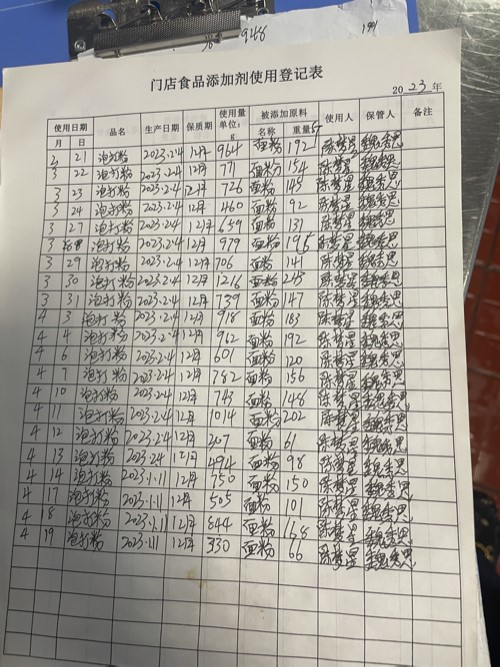 948
门店食品添加剂使用登记表
2023年
使用日期 品名 生产日期 保质期 使用量单位:g 被添加原料 使用人 保管人 备注
月 日 名称 重量
3 21 泡打粉 2023.2.4 12月 964 面粉 192 陈梦星
3 22 泡打粉 2023.2.4 12月 771 面粉 154 陈梦星
3 23 泡打粉 2023.2.4 12月 726 面粉 145 陈梦星
3 24 泡打粉 2023.2.4 12月 460 面粉 92 陈梦星
3 27 泡打粉 2023.2.4 12月 659 面粉 131 陈梦星
3 泡打粉 2023.2.4 12月 979 面粉 195 陈梦星
3 29 泡打粉 2023.2.4 12月 706 面粉 141 陈梦星
3 30 泡打粉 2023.2.4 12月 1216 面粉 243 陈梦星
3 31 泡打粉 2023.2.4 12月 739 面粉 147 陈梦星
4 3 泡打粉 2023.2.4 12月 918 面粉 183 陈梦星
4 4 泡打粉 2023.2.4 12月 962 面粉 192 陈梦星
4 6 泡打粉 2023.2.4 12月 601 面粉 120 陈梦星
4 7 泡打粉 2023.2.4 12月 782 面粉 156 陈梦星
4 10 泡打粉 2023.2.4 12月 743 面粉 148 陈梦星
4 11 泡打粉 2023.2.4 12月 1014 面粉 202 陈梦星
4 12 泡打粉 2023.2.4 12月 307 面粉 61 陈梦星
4 13 泡打粉 2023.2.4 12月 494 面粉 98 陈梦星
4 14 泡打粉 2023.1.11 12月 750 面粉 150 陈梦星
4 17 泡打粉 2023.1.11 12月 505 面粉 101 陈梦星
4 18 泡打粉 2023.1.11 12月 844 面粉 168 陈梦星
4 19 泡打粉 2023.1.11 12月 330 面粉 66 陈梦星